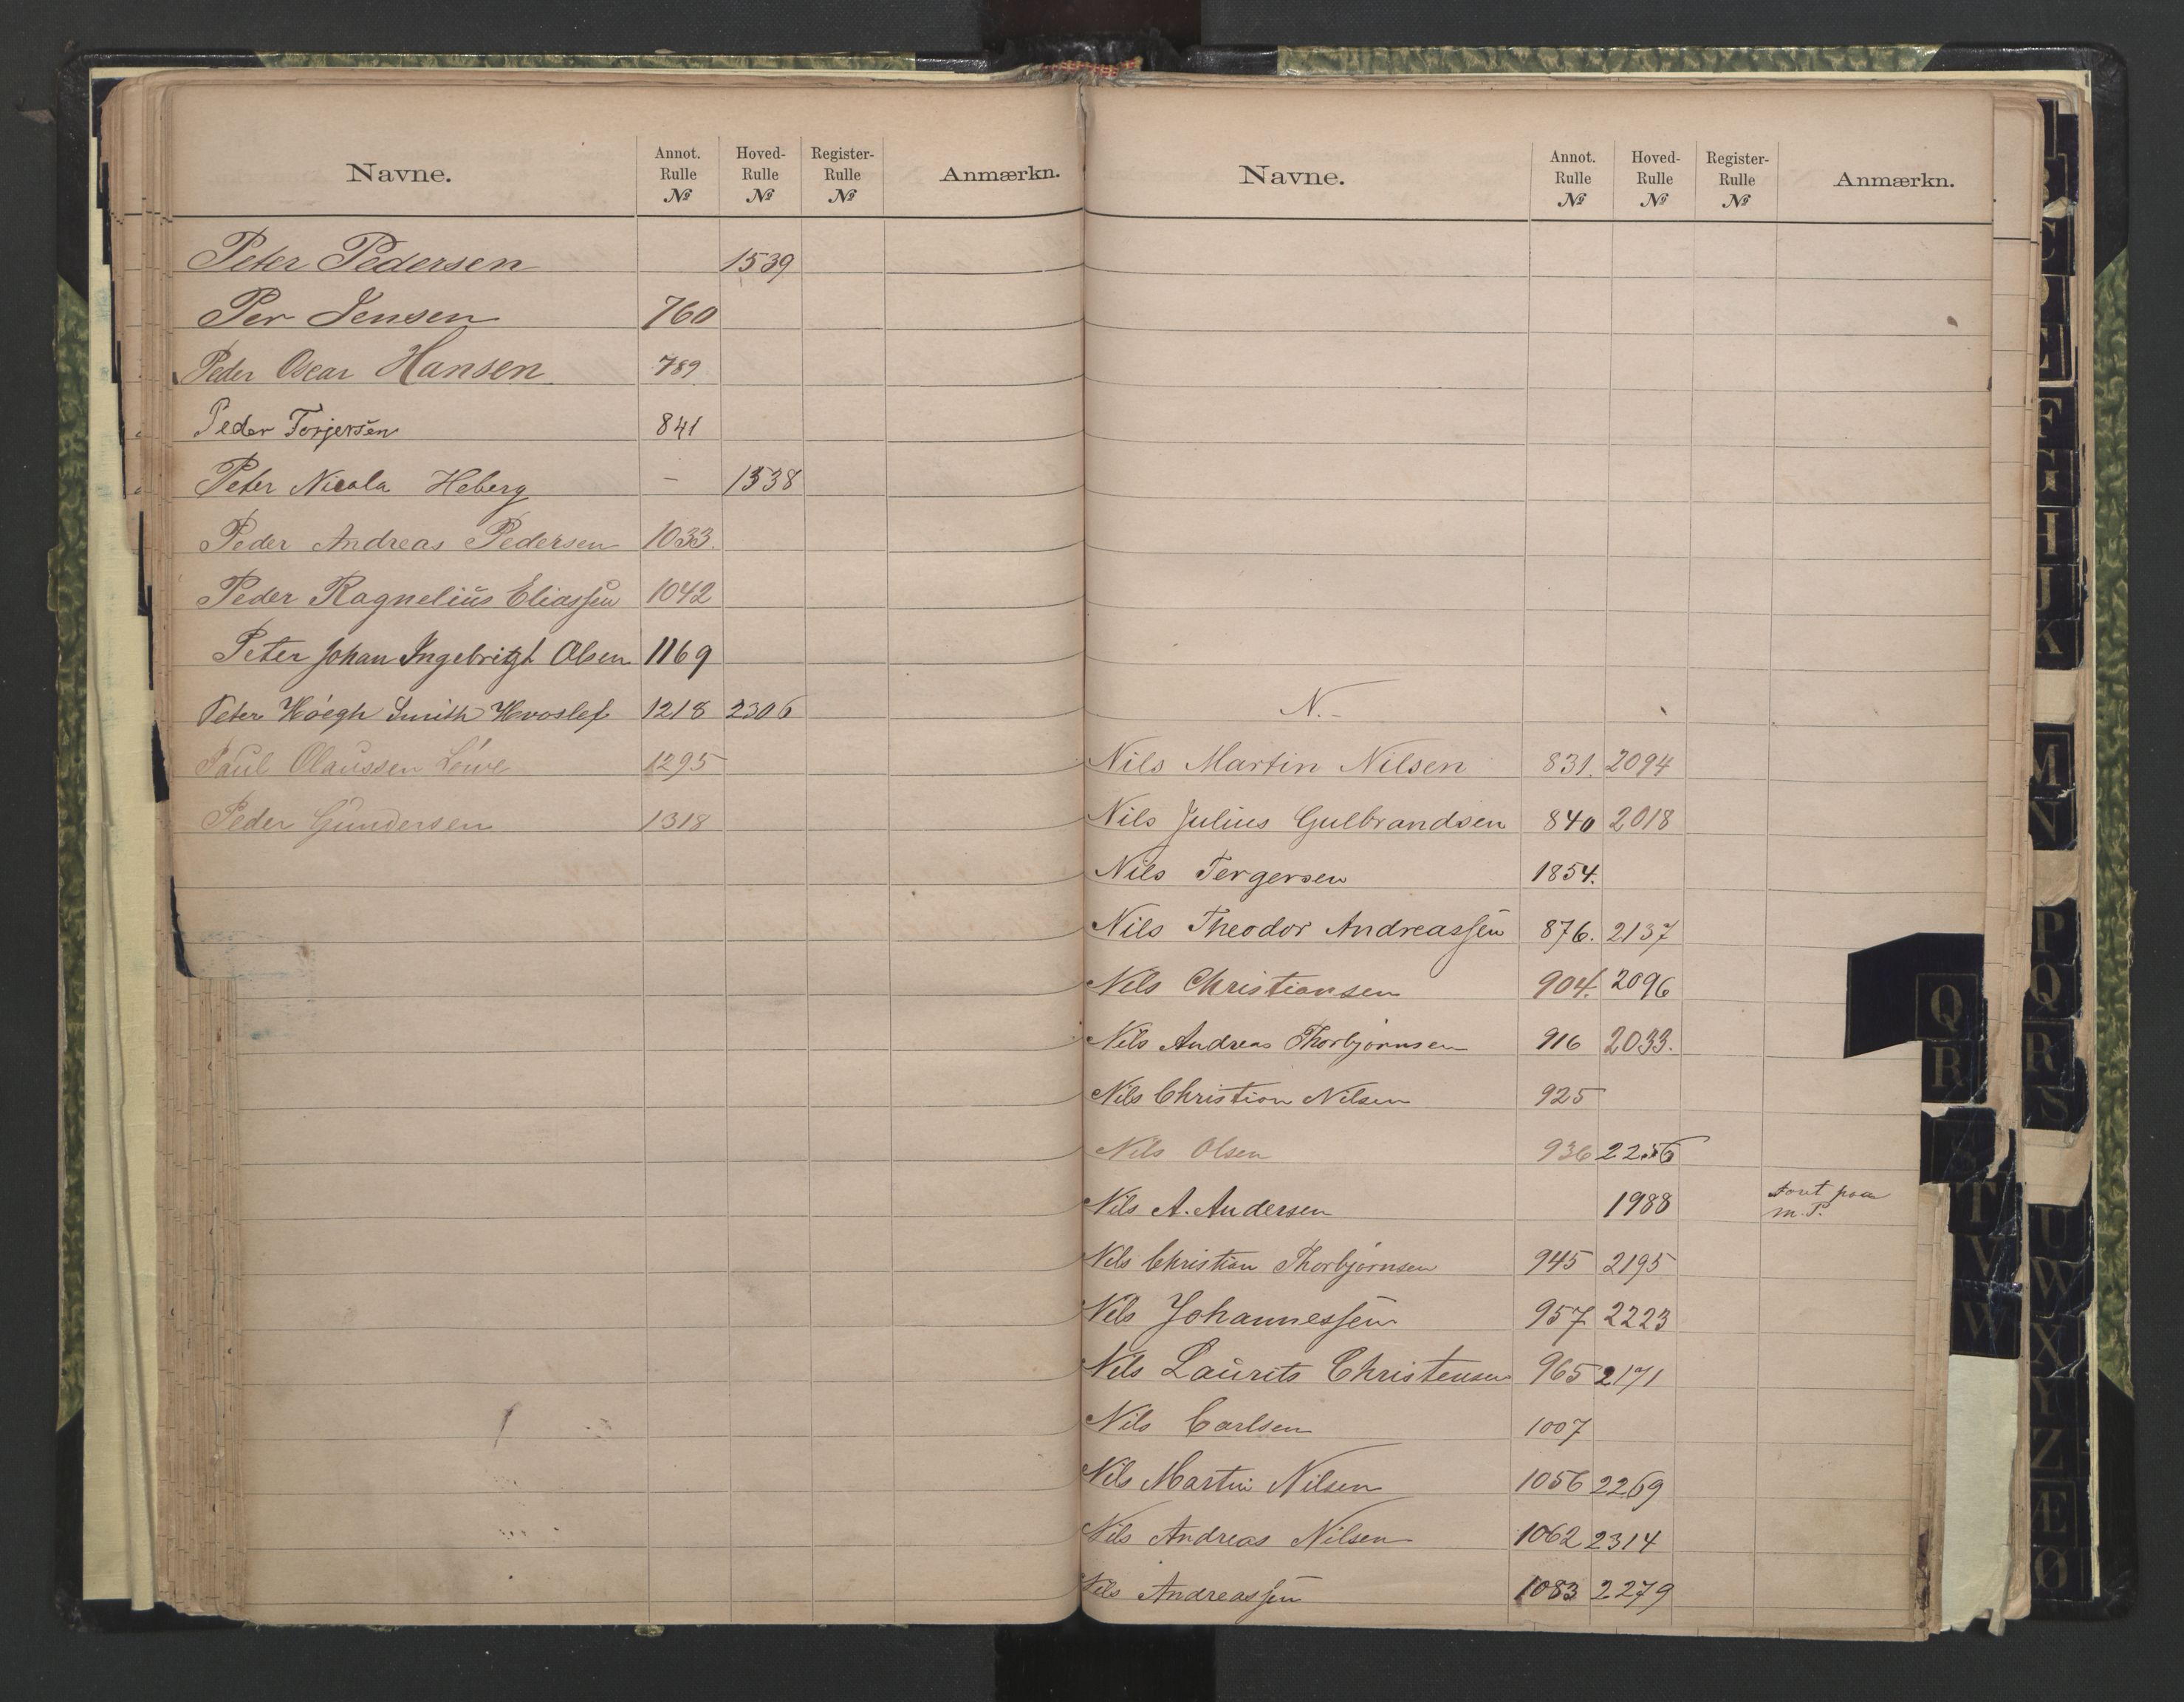 Navne. Annot. Rulle № Hoved-Rulle № Register-Rulle № Anmærkn.
Peter Pedersen 1539
Per Jensen 760
Peder Oscar Hansen 789
Peder Torjersen 841
Peter Nicola Heberg — 1538
Peder Andreas Pedersen 1033.
Peder Ragnelius Eliassen 1042
Peter Johan Ingebrigt Olsen 1169
Peter Höegh Smith Hvoslef 1218 2306
Paul Olaussen Löwe 1295
Peder Gundersen 1318
Navne. Annot. Rulle № Hoved-Rulle № Register-Rulle № Anmærkn.
N.-
Nils Martin Nilsen 831. 2094
Nils Julius Gulbrandsen 840 2018
Nils Tergersen 1854.
Nils Theodor Andreassen 876. 2137
Nils Christiansen 904. 2096
Nils Andreas Thorbjörnsen 916 2033.
Nils Christian Nilsen 925
Nils Olsen 936 2256
Nils A. Andersen 1988 paa
m.P.
Nils Christian Thorbjörnsen 945 2195
Nils Johannessen 957 2223
Nils Laurits Christensen 965 2171
Nils Carlsen 1007
Nils Martin Nilsen 1056 2269
Nils Andreas Nilsen 1062 2314
Nils Andreassen 1083 2279
Q
R
S
T
V
W
C
E
F
G
H
J
K
M
N
P
Q
R
S
U
W
X
Y
Z
Æ
Ø